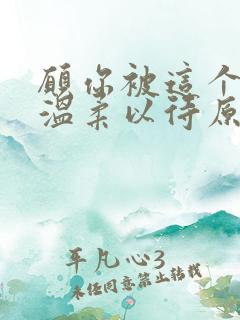 願你被這个
溫柔以待原
平凡心3
未经同意禁止转载